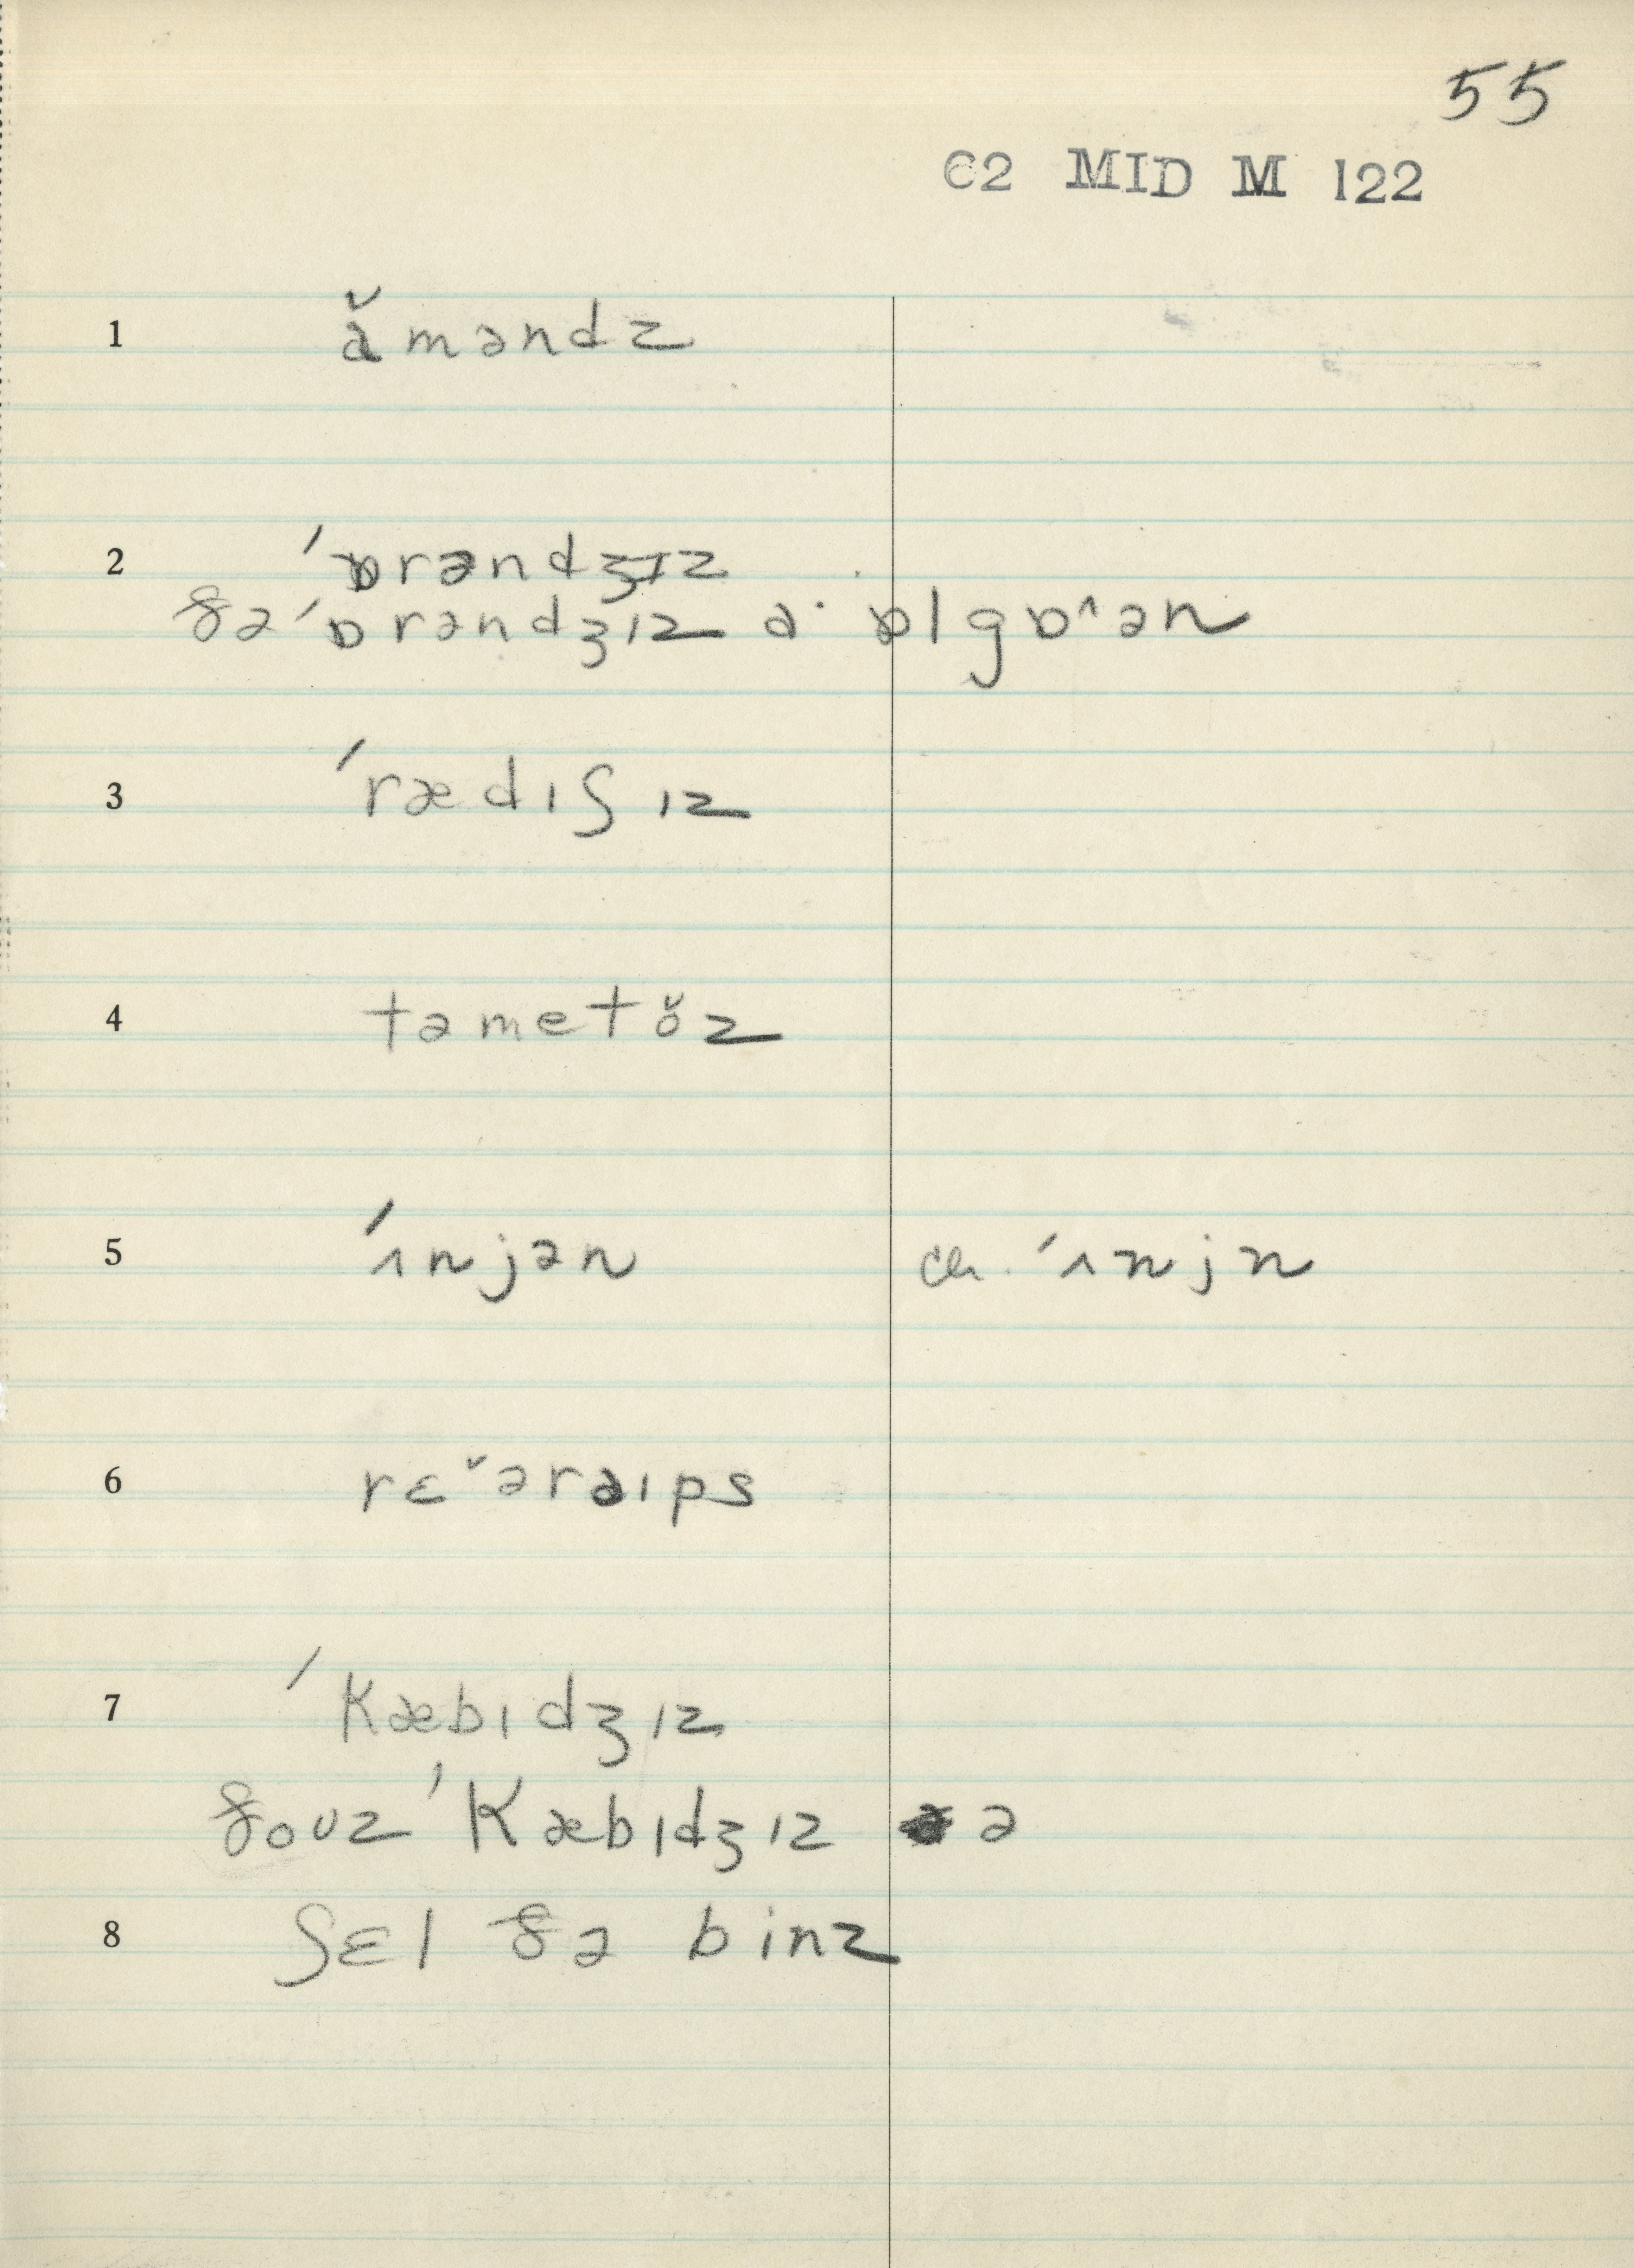 55
C2 MID M 122
1 ɑ̌məndz
2 ˈɒrəndʒɪz
ðəˈɒrəndʒɪz a· ɒlgɒ^ən
3 ˈrædɪʃɪz
4 təmetǒz
5 ˈɪnjən ch. ˈɪnjn
6 rɛˇəraɪps
7 ˈkæbɪdʒɪz
ðoʊz ˈkæbɪdʒɪz ə
8 ʃɛl ðə binz